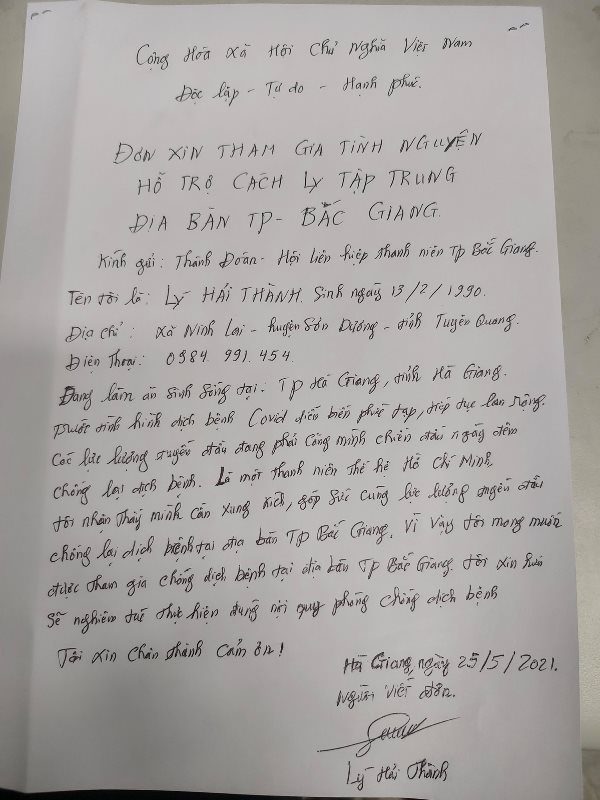 Cộng Hòa Xã Hội Chủ Nghĩa Việt Nam
Độc lập - Tự do - Hạnh phúc.
ĐƠN XIN THAM GIA TÌNH NGUYỆN
HỖ TRỢ CÁCH LY TẬP TRUNG
ĐỊA BÀN TP - BẮC GIANG.
Kính gửi: Thành Đoàn - Hội liên hiệp thanh niên Tp Bắc Giang.
Tên tôi là: LÝ HẢI THÀNH. Sinh ngày 13/2/1990.
Địa chỉ: Xã Ninh Lai - huyện Sơn Dương - tỉnh Tuyên Quang.
Điện Thoại: 0984.991.454.
Đang làm ăn sinh sống tại: TP Hà Giang, tỉnh Hà Giang.
trước tình hình dịch bệnh Covid diễn biến phức tạp, tiếp tục lan rộng.
Các lực lượng tuyến đầu đang phải Công mình chiến đấu ngày đêm
chống lại dịch bệnh. Là một thanh niên thế hệ Hồ Chí Minh,
tôi nhận thấy mình cần xung kích, góp sức cùng lực lượng tuyến đầu
chống lại dịch bệnh tại địa bàn TP Bắc Giang. Vì vậy tôi mong muốn
được tham gia chống dịch bệnh tại địa bàn TP Bắc Giang. tôi xin hứa
sẽ nghiêm túc thực hiện đúng nội quy phòng chống dịch bệnh
Tôi xin chân thành cảm ơn!
Hà Giang, ngày 25/5/2021.
Người viết đơn.
Lý Hải Thành